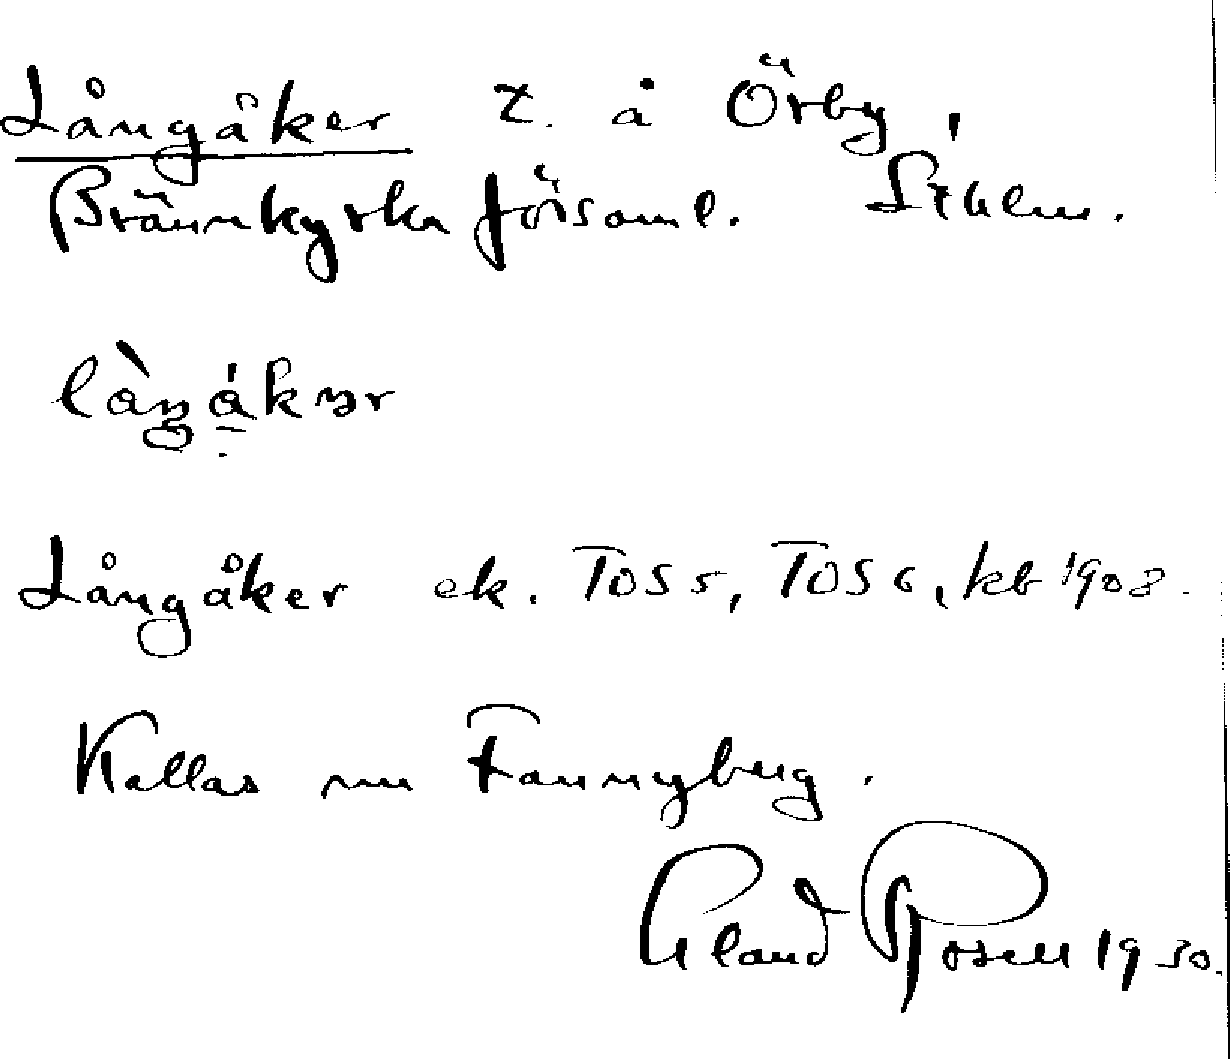 Långåker t. å Örby,
Brännkyrka församl. Sthlm.
Långåker ek. TOS 5, TOS 6, kb 1908.
Kallas nu Fannyberg.
Rosell 1930.